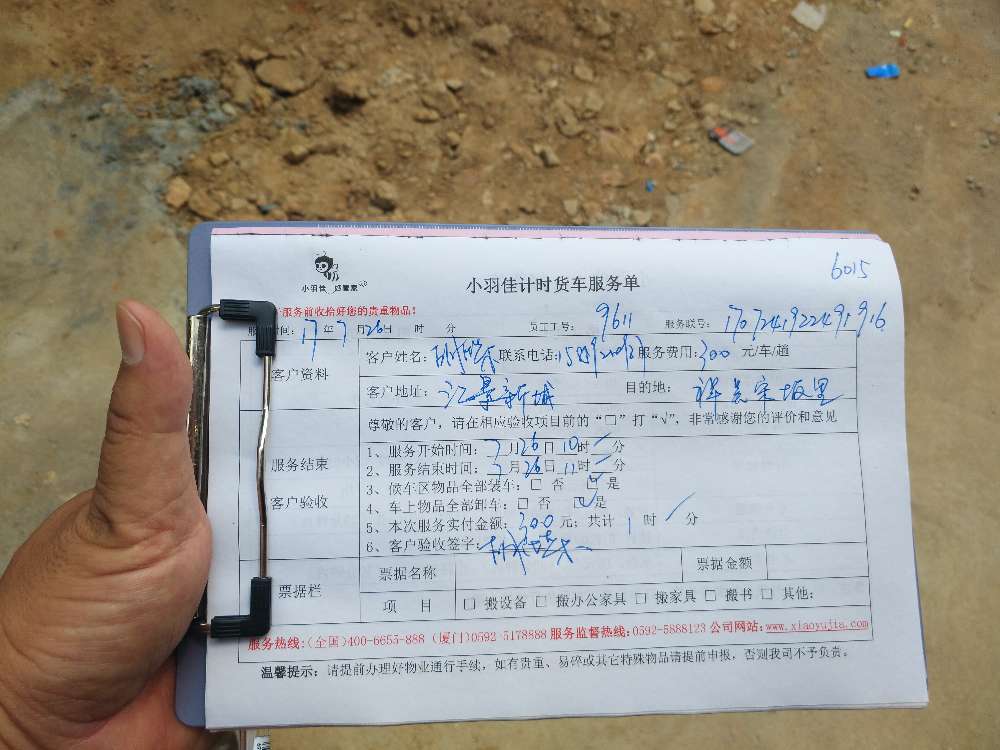 6015
小羽佳 好管家
小羽佳计时货车服务单
服务前收拾好您的贵重物品!
时间: 17 年 7 月 26 日 时 分 员工工号: 9611 服务联号:
客户资料
客户姓名: 联系电话: 服务费用: 300 元/车/趟
客户地址: 江景新城 目的地:
尊敬的客户, 请在相应验收项目前的“□”打“√”, 非常感谢您的评价和意见
服务结束
客户验收
1、服务开始时间: 7 月 26 日 10 时 分
2、服务结束时间: 7 月 26 日 11 时 分
3、候车区物品全部装车: □ 否 ☑ 是
4、车上物品全部卸车: □ 否 ☑ 是
5、本次服务实付金额: 300 元; 共计 1 时 分
6、客户验收签字:
票据栏
票据名称 票据金额
项 目 □ 搬设备 □ 搬办公家具 □ 搬家具 □ 搬书 □ 其他:
服务热线:(全国)400-6655-888 (厦门)0592-5178888 服务监督热线:0592-5888123 公司网站: www.xiaoyujia.com
温馨提示: 请提前办理好物业通行手续, 如有贵重、易碎或其它特殊物品请提前申报, 否则我司不予负责。